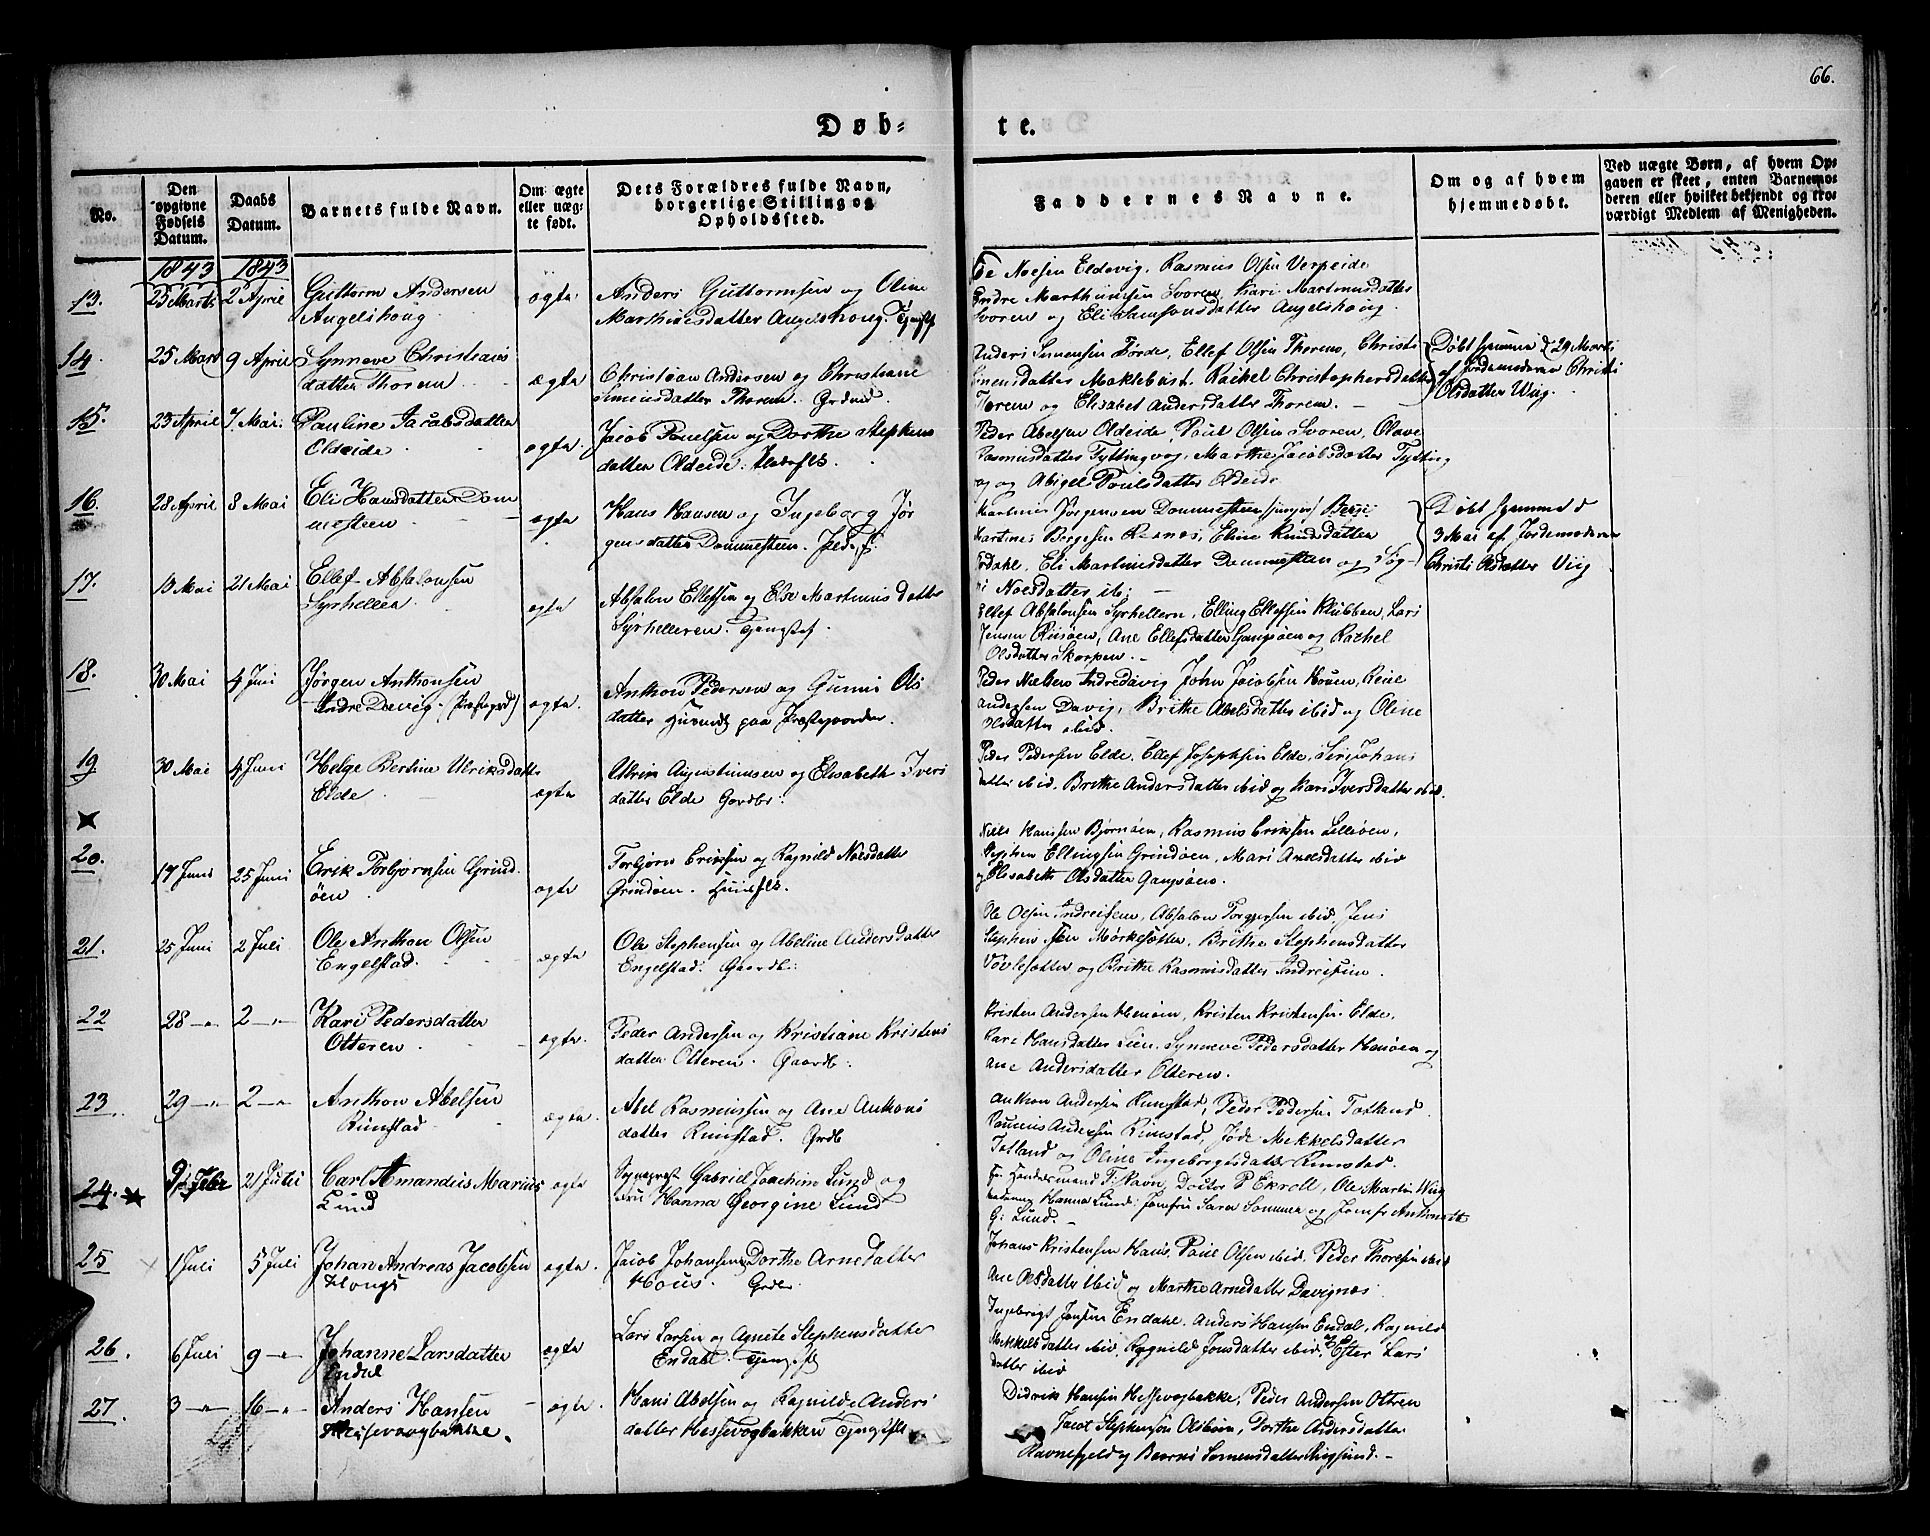 66.
Døb- te.
No.
Den opgivne Fødsels Datum.
Daabs Datum.
Barnets fulde Navn.
Om ægte eller uægte født.
Dets Forældres fulde Navn, borgerlige Stilling og Opholdssted.
Faddernes Navne.
Om og af hvem hjemmedøbt.
Ved uægte Børn, af hvem Opgaven er skeet, enten Barnemoderen eller hvilket bekjendt og troværdigt Medlem af Menigheden.
1843 1843
13. 23 Marts 2 April Guttorm Andersen
Angelshoug
ægte
Anders Guttormsen og Oline
Marthinesdatter Angelshoug.
Noesen Eldevig, Rasmus Olsen Verpeide
Endre Marthinusen Svoren, Kari Martinusdatter
Svoren og Eli Samsonsdatter Angelshaug.
14. 25 Mart 9 April Synneve Christians
datter Thorem
ægte
Christian Andersen og Christiane
Simensdatter Thorem. Grdmd.
Anders Simensen Førde, Ellef Olsen Thorem, Christi
Simensdatter Maklebust, Rachel Christophersdatter
Torem og Elisabet Andersdatter Thorem.
Døbt hjemme d 29 Marts
af Jordemoderen Christi
Olsdatter Wiig.
15. 23 April 7. Mai. Pauline Jacobsdatter
Oldeide
ægte
Jacob Poulsen og Dorthe Stephens
datter Oldeide.
Peder Abelsen Oldeide, Poul Olsen Svoren, Olave
Rasmusdatter Tyttingvog, Marthe Jacobsdatter Tytting
og og Abigel Poulsdatter Oldeide
16. 28 April 8 Mai Eli Hansdatter Dom
mesteen
ægte
Hans Hansen og Ingeborg Jør
gensdatter Dommesteen.
Martinus Jørgensen Dommesteen
Martines Børgesen Rexnes, Eline Knudsdatter
Ørdahl, Eli Martinusdatter Dommesteen og
Noesdatter ib:
Døbt hjemme d
3 Mai af Jordemoderen
Christi Olsdatter Viig
17. 13 Mai 21 Mai Ellef Absalonsen
Syrhellen
ægte
Absalon Ellefsen og Else Martinus datter
Syrhelleren.
Ellef Absalonsen Syrhellern, Elling Ellefsen Klubben, Lars
Jensen Risøen, Ane Ellefsdatter Gangsøen og Rachel
Olsdatter Skorpen.
18. 30 Mai 4 Juni Jørgen Anthonsen
Indre Davig (Præstegrd)
ægte.
Anthon Pedersen og Gunni Ols
datter Husmd: paa Præstegaarden.
Peder Nielsen Indredavig John Jacobsen Houen, Reiel
Andersen Davig, Brithe Abelsdatter ibid og Oline
Olsdatter ibid.
19 30 Mai 4 Juni Helge Bertine Ulriksdatter
Elde
ægte
Ulrik Augustinussen og Elisabeth Ivers
datter Elde Gardbr:
Peder Pedersen Elde, Ellef Josephsen Elde, Siri Johans
datter ibid, Brithe Andersdatter ibid og Kari Iversdatter ibid.
20. 17 Juni 25 Juni Erik Torbjørnsen Grind
øen
ægte
Torbjørn Eriksen og Ragnild Noesdatter
Grindøen.
Niels Hanssen Bjørnøen, Rasmus Eriksen Lilleøen,
Stephen Ellingsen Grindøen, Mari Axelsdatter ibid
og Elisabeth Olsdatter Gangsøen.
21. 25 Juni 2 Juli Ole Anthon Olsen
Engelstad.
ægte
Ole Stephensen og Abeline Andersdatter
Engelstad. Gaardb:
Ole Olsen Indreisem, Absalon Torgersen ibid, Jens
Stephensen Mørkesetter, Brithe Stephensdatter
Vovlesetter og Brithe Rasmusdatter Indreisem.
22 28 — 2 — Kari Pedersdatter
Otteren
ægte.
Peder Andersen og Kristiane Kristens
datter Otteren. Gaardb:
Kristen Andersen Henøen, Kristen Kristensen Elde,
Kari Hansdatter Lien, Synneve Pedersdatter Henøen og
Ane Andersdatter Otteren.
23 29 — 2 — Anthon Abelsen
Rimstad
ægte.
Abel Rasmussen og Ane Anthons
datter Rimstad. Grdb
Anthon Andersen Rimstad, Peder Pedersen Totland
Rasmus Andersen Rimstad, Jøde Mekkelsdatter
Totland og Oline Ingebrigtsdatter Rimstad.
24. 9 Febr 21 Juli Carl Amandus Marius
Lund
ægte
Sognepræst Gabriel Joachim Lund og
Fru Hanna Georgine Lund
Hr Handelsmand F: Ravn, Doctor P Ekroll, Ole Martin Wiig
Madame Hanna Lund, Jomfru Sara Sommer og Jomfr Anthonette
G: Lund.
25 1 Juli 5 Juli Johan Andreas Jacobsen
Hougs
ægte.
Jacob Johansen og Dorthe Arnedatter
Hous. Grdbr
Johans Kristensen Hous, Poul Olsen ibid, Peder Thoresen ibid
Ane Olsdatter ibid og Marthe Arnedatter Davignes
26. 6 Juli 9 — Johanne Larsdatter
Endal
ægte
Lars Larsen og Agnete Stephensdatter
Endahl.
Ingebrigt Jonsen Endahl, Anders Hansen Endal, Ragnild
Mekkelsdatter ibid, Ragnild Jonsdatter ibid, og Ester Lars
datter ibid
27. 3 — 16 — Anders Hansen
Hessevogbakke.
ægte.
Hans Abelsen og Ragnilde Anders
datter Hessevogbakken
Didrik Hansen Hessevogbakke, Peder Andersen Otteren
Jacob Stephensen Alsteen, Dorthe Andersdatter
Ravnefjeld og Beerni Simensdatter